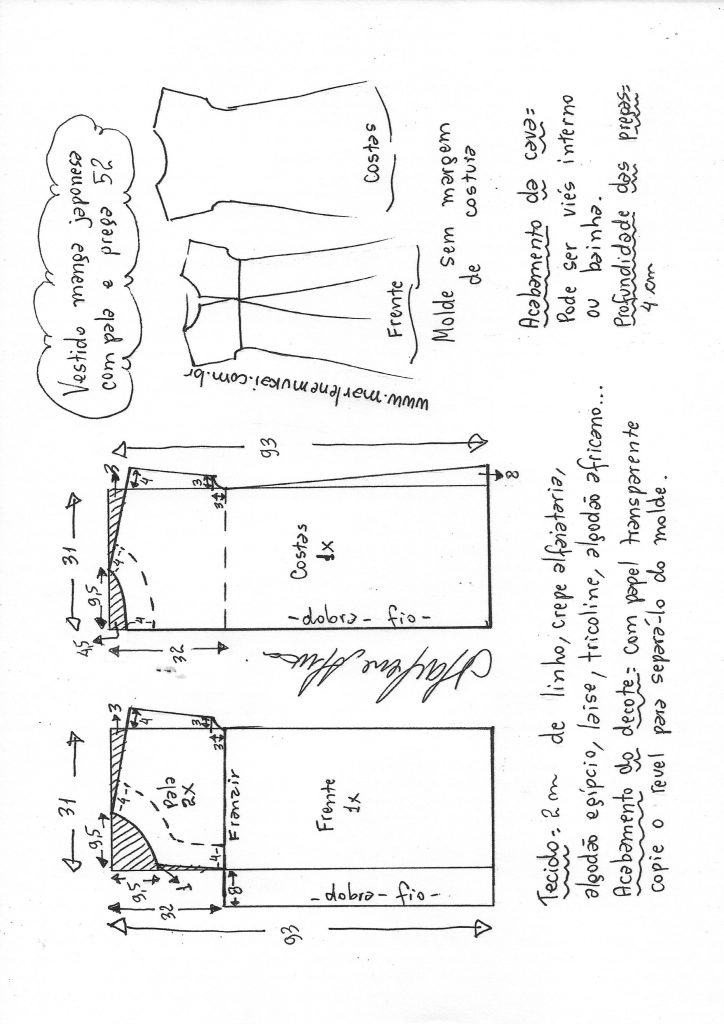 Vestido manga japonesa
com pala e prega 52
www.marlenemukai.com.br
Frente
Costas
Molde sem margem
de costura
Acabamento da cava:
Pode ser viés interno
ou bainha.
Profundidade das pregas:
4 cm
93
32
9,5
1
31
9,5
3
4
3
3
4
4
Pala
2x
Franzir
8
Frente
1x
dobra - fio -
4,5
32
31
9,5
3
4
3
3
4
4
93
8
Costas
1x
dobra - fio -
Marlene Mukai
Tecido: 2 m de linho, crepe alfaiataria,
algodão egípcio, laise, tricoline, algodão africano...
Acabamento do decote: Com papel transparente
copie o revel para separá-lo do molde.